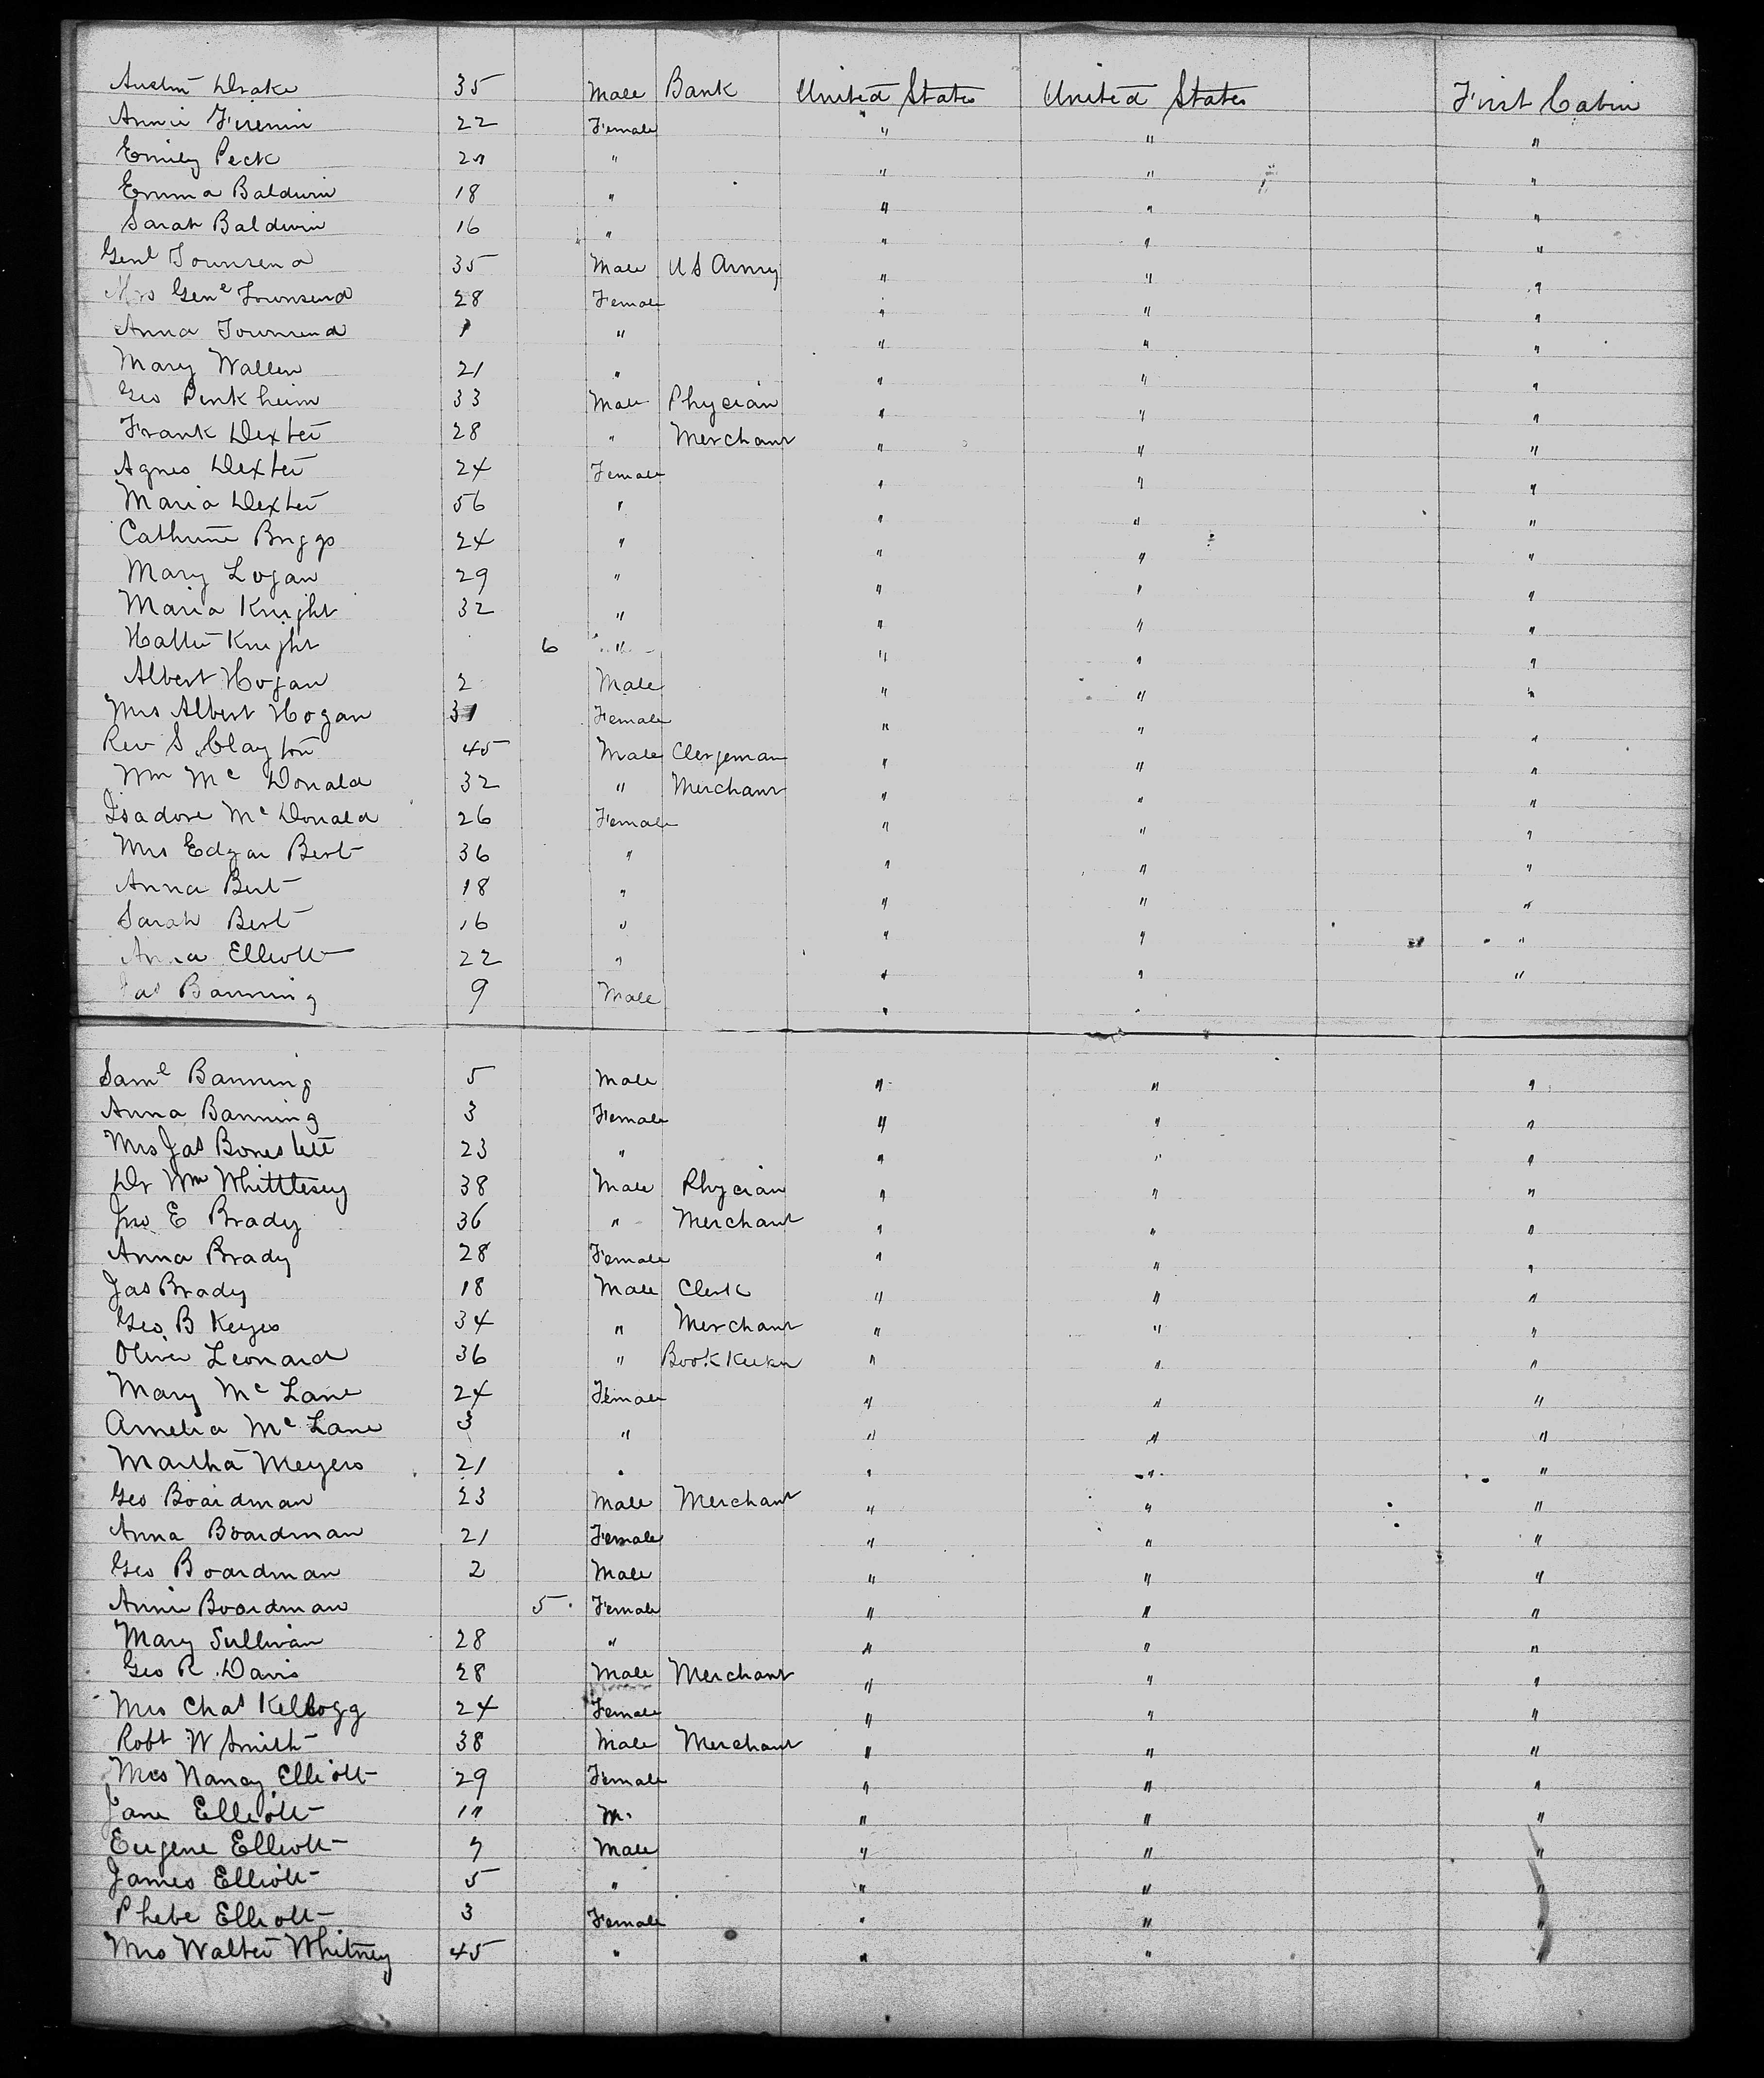 Austin Drake 35 Male Bank United States United States First Cabin
Annie 22 Female " " "
Emily Peck " " " "
Emma Baldwin 18 " " " "
Sarah Baldwin 16 " " " "
Genl Townsend 35 Male U S Army " " "
Mrs Genl Townsend 28 Female " " "
Anna Townsend " " " "
Mary Wallen 21 " " " "
Geo Penkheim 33 Male Phycian " " "
Frank Dexter 28 " Merchant " " "
Agnes Dexter 24 Female " " "
Maria Dexter 56 " " " "
Catherine Briggs 24 " " " "
Mary Logan 29 " " " "
Maria Knight 32 " " " "
Hattie Knight 6 " " " "
Albert Hogan 2 Male " " "
Mrs Albert Hogan 31 Female " " "
Rev S. Clayton 45 Male Clergeman " " "
Wm Mc Donald 32 " Merchant " " "
Isadore Mc Donald 26 Female " " "
Mrs Edgar Bert 36 " " " "
Anna Bert 18 " " " "
Sarah Bert 16 " " " "
Anna Elliott 22 " " " "
Jas Banning 9 Male " "
Saml Banning 5 Male " " "
Anna Banning 3 Female " " "
Mrs Jas Boneslett 23 " " " "
Dr Wm Whittlesey 38 Male Phycian " " "
Jno E Brady 36 " Merchant " " "
Anna Brady 28 Female " " "
Jas Brady 18 Male Clerk " " "
Geo. B Keyes 34 " Merchant " " "
Oliver Leonard 36 " Book Keeker " " "
Mary Mc Lane 24 Female " " "
Amelia Mc Lane 3 " " " "
Martha Meyers 21 " " " "
Geo Boardman 23 Male Merchant " " "
Anna Boardman 21 Female " " "
Geo Boardman 2 Male " " "
Annie Boardman 5 Female " " "
Mary Sullivan 28 " " " "
Geo R. Davis 28 Male Merchant " " "
Mrs Chas Kellogg 24 Female " " "
Robt W Smith 38 Male Merchant " " "
Mrs Nancy Elliott 29 Female " " "
Jane Elliott M. " " "
Eugene Elliott 7 Male " " "
James Elliott 5 " " " "
Phebe Elliott 3 Female " " "
Mrs Walter Whitney 45 " " " "